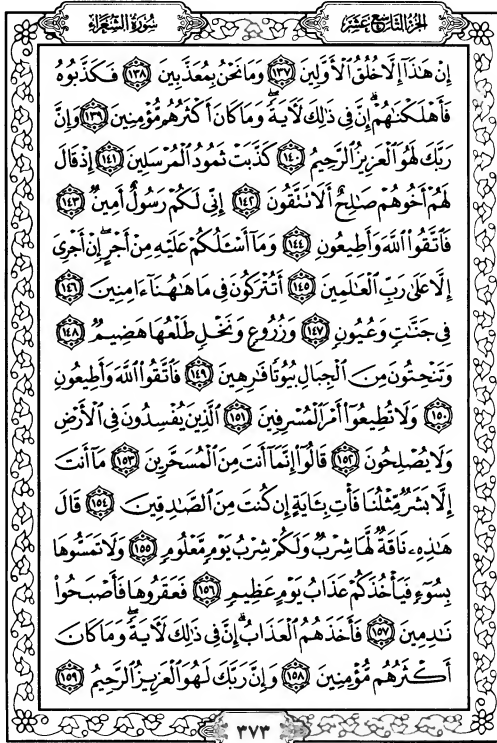 الجزء التاسع عشر
سورة الشعراء
إِنْ هَٰذَآ إِلَّا خُلُقُ ٱلْأَوَّلِينَ ﴿١٣٧﴾ وَمَا نَحْنُ بِمُعَذَّبِينَ ﴿١٣٨﴾ فَكَذَّبُوهُ
فَأَهْلَكْنَٰهُمْ ۗ إِنَّ فِى ذَٰلِكَ لَءَايَةً ۖ وَمَا كَانَ أَكْثَرُهُم مُّؤْمِنِينَ ﴿١٣٩﴾ وَإِنَّ
رَبَّكَ لَهُوَ ٱلْعَزِيزُ ٱلرَّحِيمُ ﴿١٤٠﴾ كَذَّبَتْ ثَمُودُ ٱلْمُرْسَلِينَ ﴿١٤١﴾ إِذْ قَالَ
لَهُمْ أَخُوهُمْ صَٰلِحٌ أَلَا تَتَّقُونَ ﴿١٤٢﴾ إِنِّى لَكُمْ رَسُولٌ أَمِينٌ ﴿١٤٣﴾
فَٱتَّقُوا۟ ٱللَّهَ وَأَطِيعُونِ ﴿١٤٤﴾ وَمَآ أَسْـَٔلُكُمْ عَلَيْهِ مِنْ أَجْرٍ ۖ إِنْ أَجْرِىَ
إِلَّا عَلَىٰ رَبِّ ٱلْعَٰلَمِينَ ﴿١٤٥﴾ أَتُتْرَكُونَ فِى مَا هَٰهُنَآ ءَامِنِينَ ﴿١٤٦﴾
فِى جَنَّٰتٍ وَعُيُونٍ ﴿١٤٧﴾ وَزُرُوعٍ وَنَخْلٍ طَلْعُهَا هَضِيمٌ ﴿١٤٨﴾
وَتَنْحِتُونَ مِنَ ٱلْجِبَالِ بُيُوتًا فَٰرِهِينَ ﴿١٤٩﴾ فَٱتَّقُوا۟ ٱللَّهَ وَأَطِيعُونِ
﴿١٥٠﴾ وَلَا تُطِيعُوٓا۟ أَمْرَ ٱلْمُسْرِفِينَ ﴿١٥١﴾ ٱلَّذِينَ يُفْسِدُونَ فِى ٱلْأَرْضِ
وَلَا يُصْلِحُونَ ﴿١٥٢﴾ قَالُوٓا۟ إِنَّمَآ أَنتَ مِنَ ٱلْمُسَحَّرِينَ ﴿١٥٣﴾ مَآ أَنتَ
إِلَّا بَشَرٌ مِّثْلُنَا فَأْتِ بِـَٔايَةٍ إِن كُنتَ مِنَ ٱلصَّٰدِقِينَ ﴿١٥٤﴾ قَالَ
هَٰذِهِۦ نَاقَةٌ لَّهَا شِرْبٌ وَلَكُمْ شِرْبُ يَوْمٍ مَّعْلُومٍ ﴿١٥٥﴾ وَلَا تَمَسُّوهَا
بِسُوٓءٍ فَيَأْخُذَكُمْ عَذَابُ يَوْمٍ عَظِيمٍ ﴿١٥٦﴾ فَعَقَرُوهَا فَأَصْبَحُوا۟
نَٰدِمِينَ ﴿١٥٧﴾ فَأَخَذَهُمُ ٱلْعَذَابُ ۗ إِنَّ فِى ذَٰلِكَ لَءَايَةً ۖ وَمَا كَانَ
أَكْثَرُهُم مُّؤْمِنِينَ ﴿١٥٨﴾ وَإِنَّ رَبَّكَ لَهُوَ ٱلْعَزِيزُ ٱلرَّحِيمُ ﴿١٥٩﴾
٣٧٣